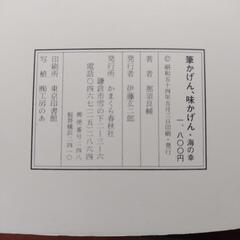 筆かげん、味かげん・海の幸
一、八〇〇円
ⓒ昭和五十四年五月三日印刷・発行
著者 那須良輔
発行者 伊藤玄二郎
発行所 かまくら春秋社
鎌倉市雪の下二―三―六
電話〇四六七(二五)二八六四
郵便番号二四八
振替横浜
印刷所 東京印書館
写植 ㈱工房のあ